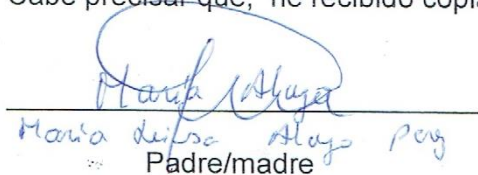 Cabe precisar que, he recibido copia
María Aloyo
María Luisa Aloyo Perez
Padre/madre